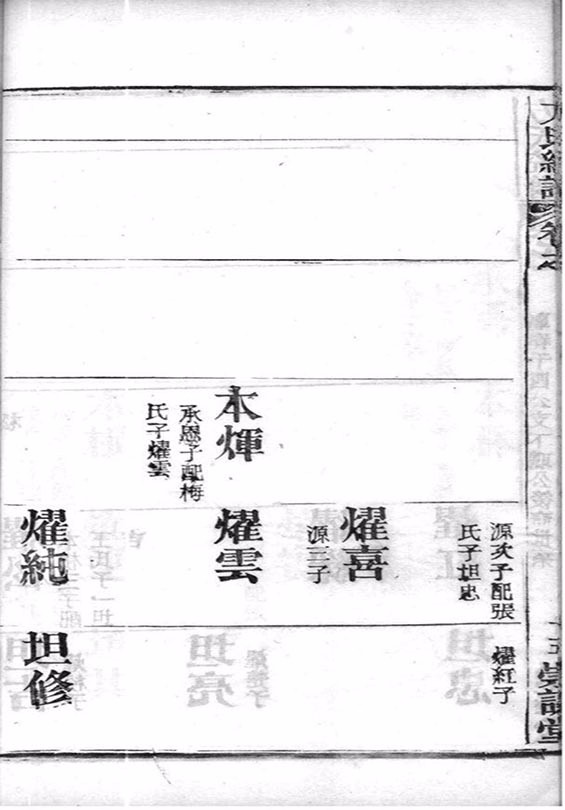 卷之
本輝
承恩子配梅
氏子燿雲
源次子配張
氏子坦忠
燿喜
源三子
燿雲
燿純
燿紅子
坦修